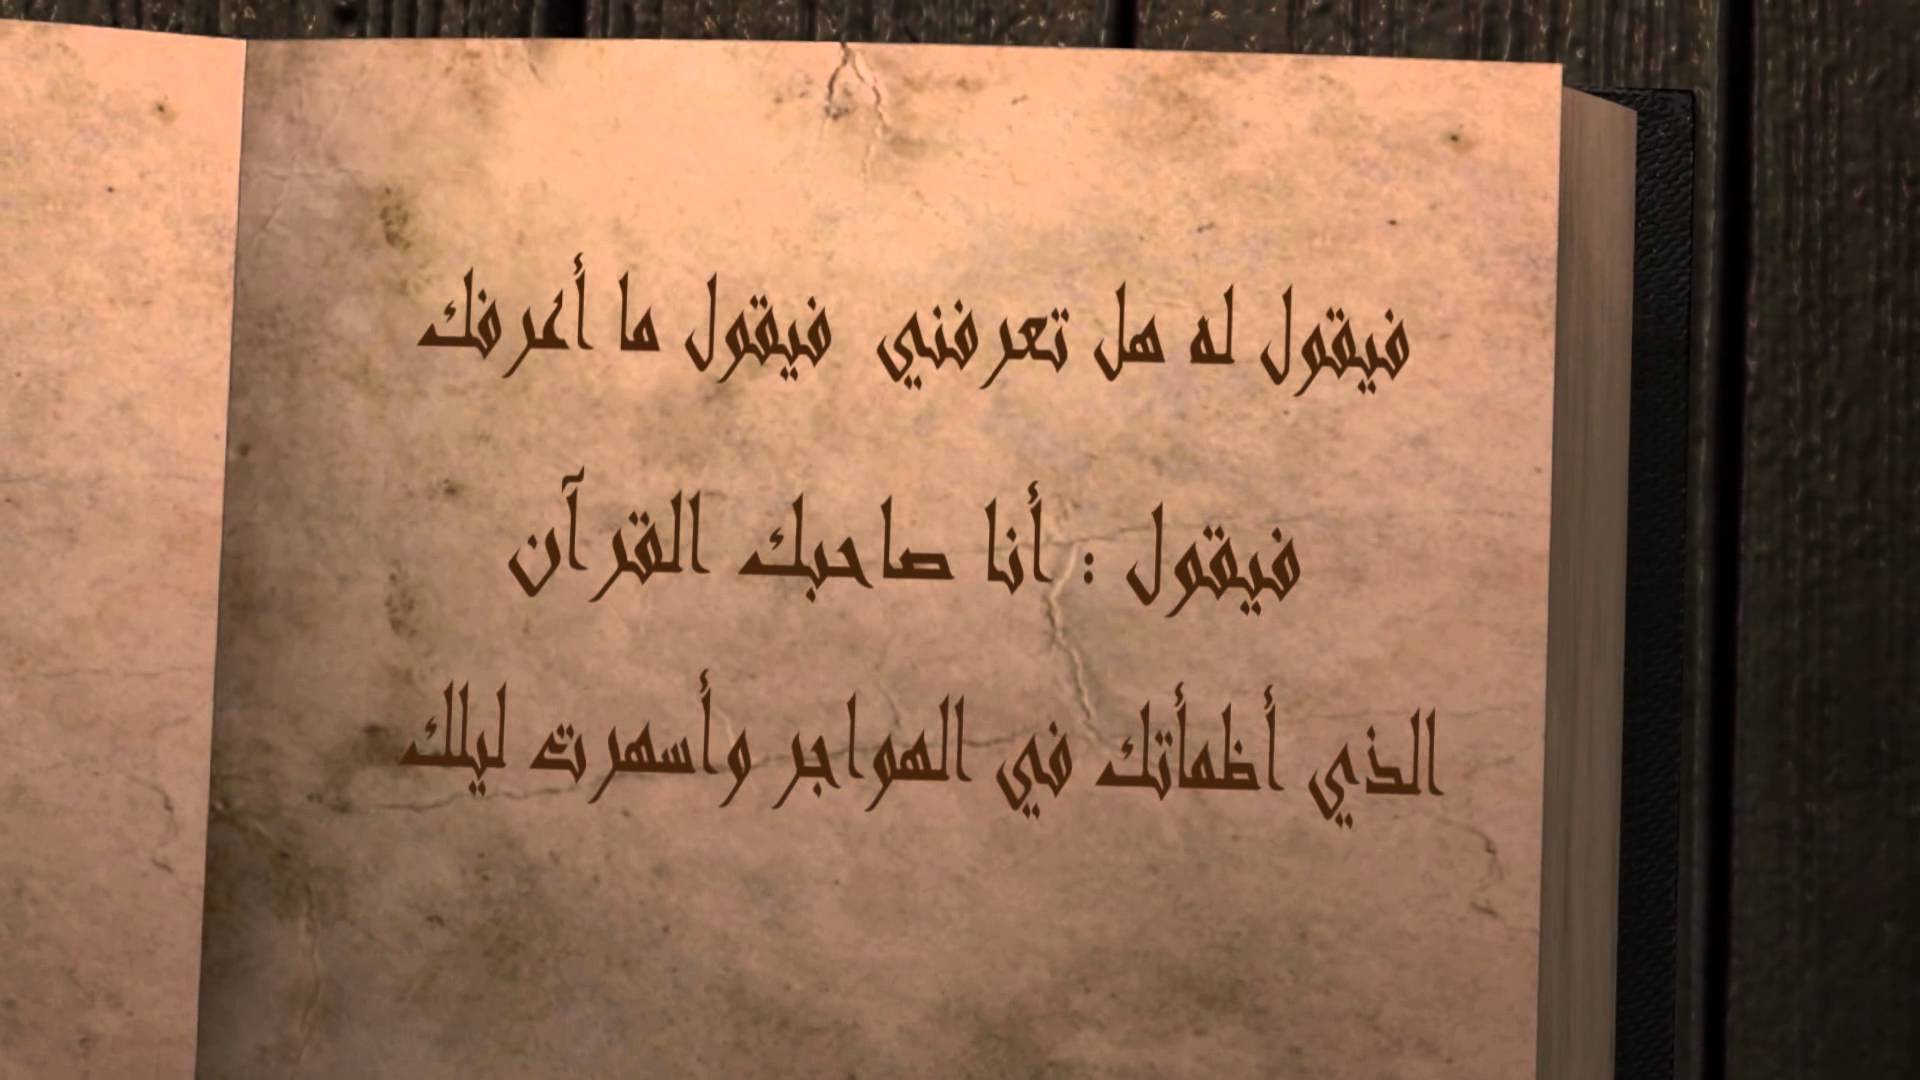 فيقول له هل تعرفني فيقول ما أعرفك
فيقول : أنا صاحبك القرآن
الذي أظمأتك في الهواجر وأسهرت ليلك